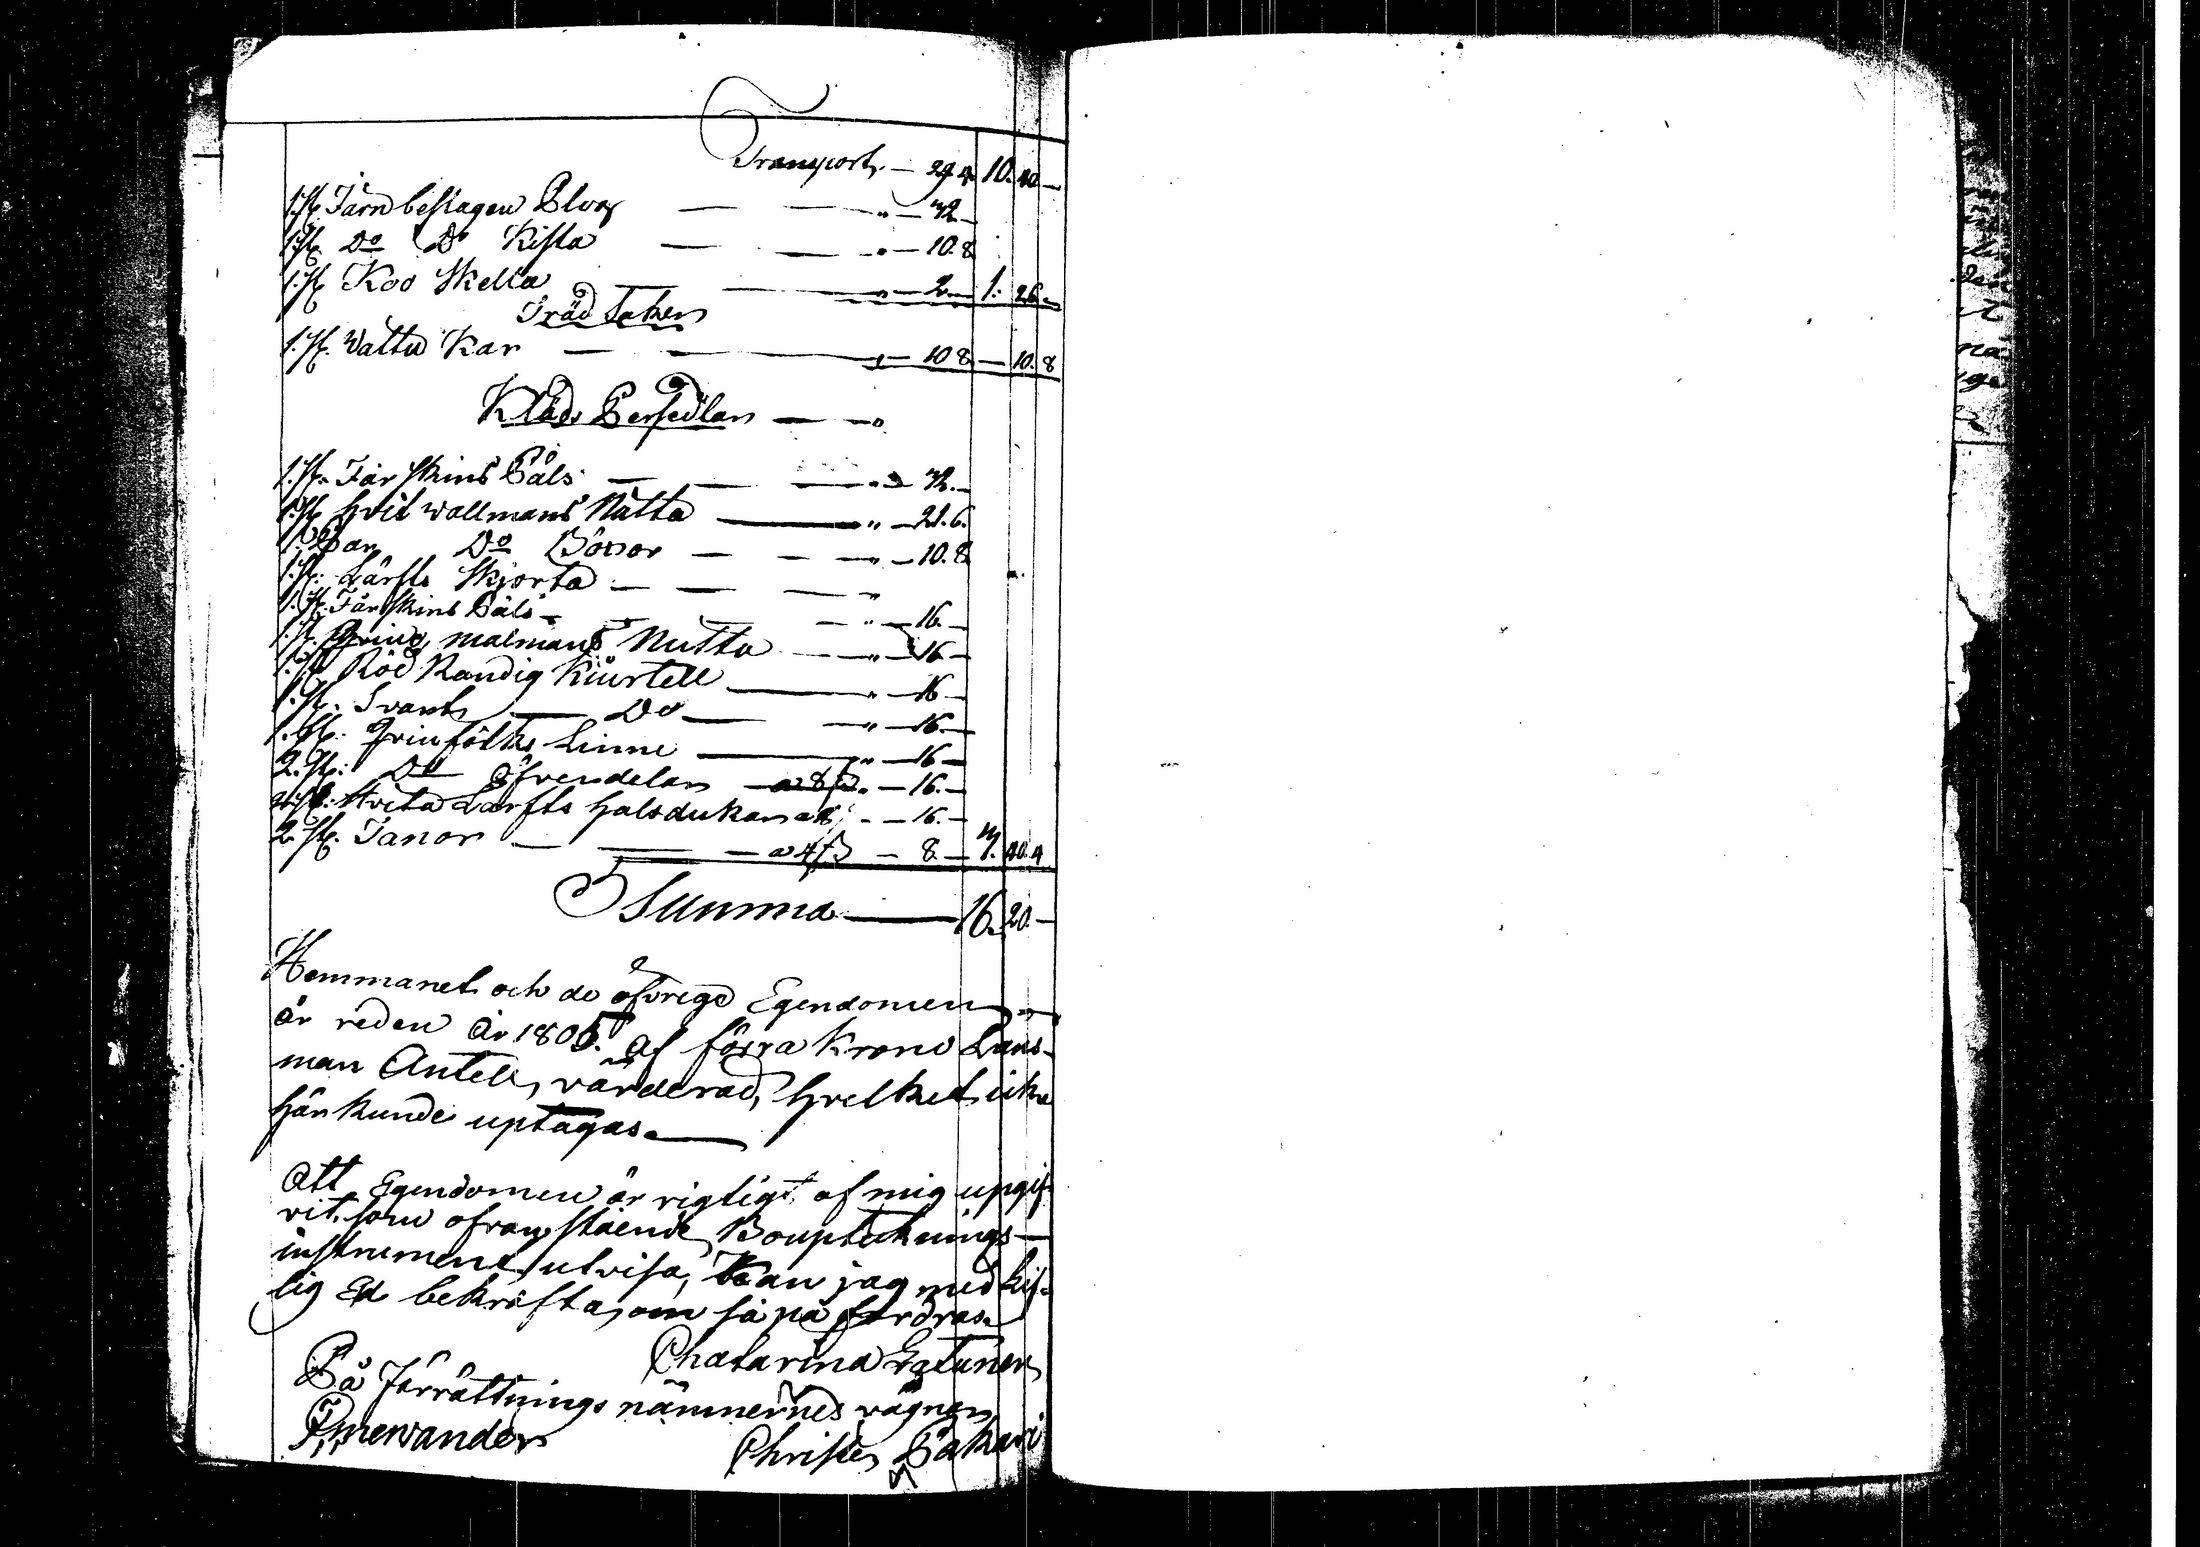 Transport, — 29.4. 10. 40 —
1. st. Järn beslagen Plog — — „ — 32 —
1. st. Do Do Kista — — „ — 10. 8.
1. st. Koo Skella — — „ — 2 — 1. 26 —
Träd Saker
1. st. Vattu Kar — — „ — 10 8 — 10. 8
Kläds Persedlar — — „
1. st. Får skins Päls — — — „ — 32. —
1. st. Hvit wallmans Nutta — „ — 21. 6.
1. Par Do Böxor — — — „ — 10. 8
1. st. Lärfts Skjorta — — — „
1. st. Får skins Päls — — — „ — 16. —
1. st. malmans Nutta — „ — 16 —
1. st. Röd Randig Kiürtell — „ — 16 —
1. st. Svart, — Do — — „ — 16. —
1. st. Qvinfolks Linne — „ — 16 —
2. st. Do Öfverdelar — a 8 ß „ — 16. —
st. Hvita Lärfts Halsdukar a 8 „ — 16. —
2. st. — — — a 4 ß — 8. — 3. 40. 4
Summa — 16. 20. —
Hemmanet och de öfrige Egendomen
är reden år 1805. af förra Krono Läns-
man Antell, värderad, Hvelket icke
här kunde uptagas. —
Att Egendomen är rigtigt af mig upgif-
vit som ofvan stående Boupteknings —
instrument utvisa, Kan jag med Lif-
lig Ed bekräfta, om så på fordras.
Chatarina
På Förrättnings männernes vägnar
Christer Pakari